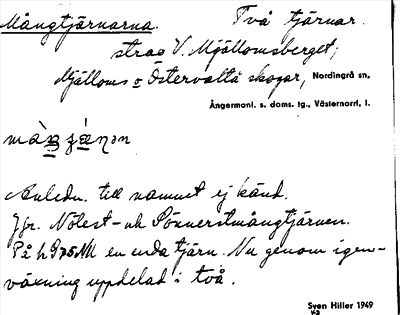 Mångtjärnarna. Två tjärnar.
strax V. Mjällomsberget;
Mjälloms o Östervåltå skogar, Nordingrå sn,
Ångermanl. s. doms. tg., Västernorrl. l.
Anledn. till namnet ej känd.
Jfr. Nölest- och Sönnerstmångtjärnen.
På h en enda tjärn. Nu genom igen-
växning uppdelad i två.
Sven Hiller 1949